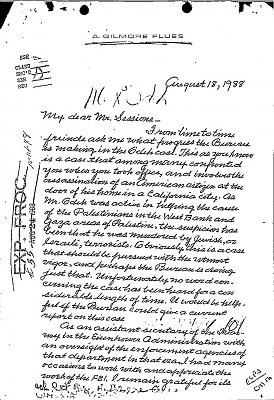 A. GILMORE FLUES
August 18, 1988
My dear Mr. Sessions—
From time to time
friends ask me what progress the Bureau
is making in the Odeh case. This as you know
is a case that among many confronted
you when you took office, and involves the
assassination of an American citizen at the
door of his home in a California city. As
Mr. Odeh was active in helping the cause
of the Palestinians in the West Bank and
Gaza areas of Palestine, the suspicion has
been that he was murdered by Jewish, or
Israeli, terrorists. Obviously this is a case
that should be pursued with the utmost
vigor, and perhaps the Bureau is doing
just that. Unfortunately no word con-
cerning the case has been heard for a con-
siderable length of time. It would be help-
ful if the Bureau could give a current
report on this case.
As an assistant secretary of the Treas-
ury in the Eisenhower Administration with
an oversight of the enforcement agencies of
that department in that era I had many
occasions to work with and appreciate the
work of the FBI. I remain grateful for its
EXP. PROC.
AUG 24 1988